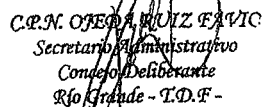 C.P.N. OJEDA RUIZ FAVIO
Secretario Administrativo
Concejo Deliberante
Río Grande - T.D.F -